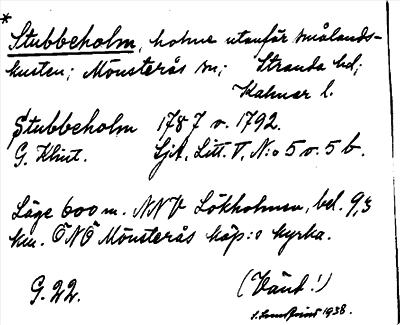 *
Stubbeholm, holme utanför Smålands-
kusten; Mönsterås sn; Stranda hd;
Kalmar l.
Stubbeholm 1787 o. 1792.
G. Klint. Sjk. Litt. V, N:o 5 o. 5 b.
Läge 600 m. NNV Lökholmen, bel. 9,3
km. ÖNÖ Mönsterås köp:s kyrka.
G. 22. (Vänd!)
1938.